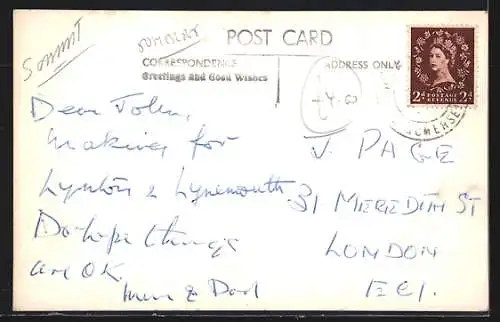 Sommt
SOMERSET
POST CARD
CORRESPONDENCE
ADDRESS ONLY
Greetings and Good Wishes
£4.00
2d POSTAGE REVENUE 2d
SOMERSE
Dear John,
Making for
Lynton & Lynemouth
Do hope things
are OK.
Mum & Dad
J. PAGE
31 MEREDITH ST
LONDON
EC1.